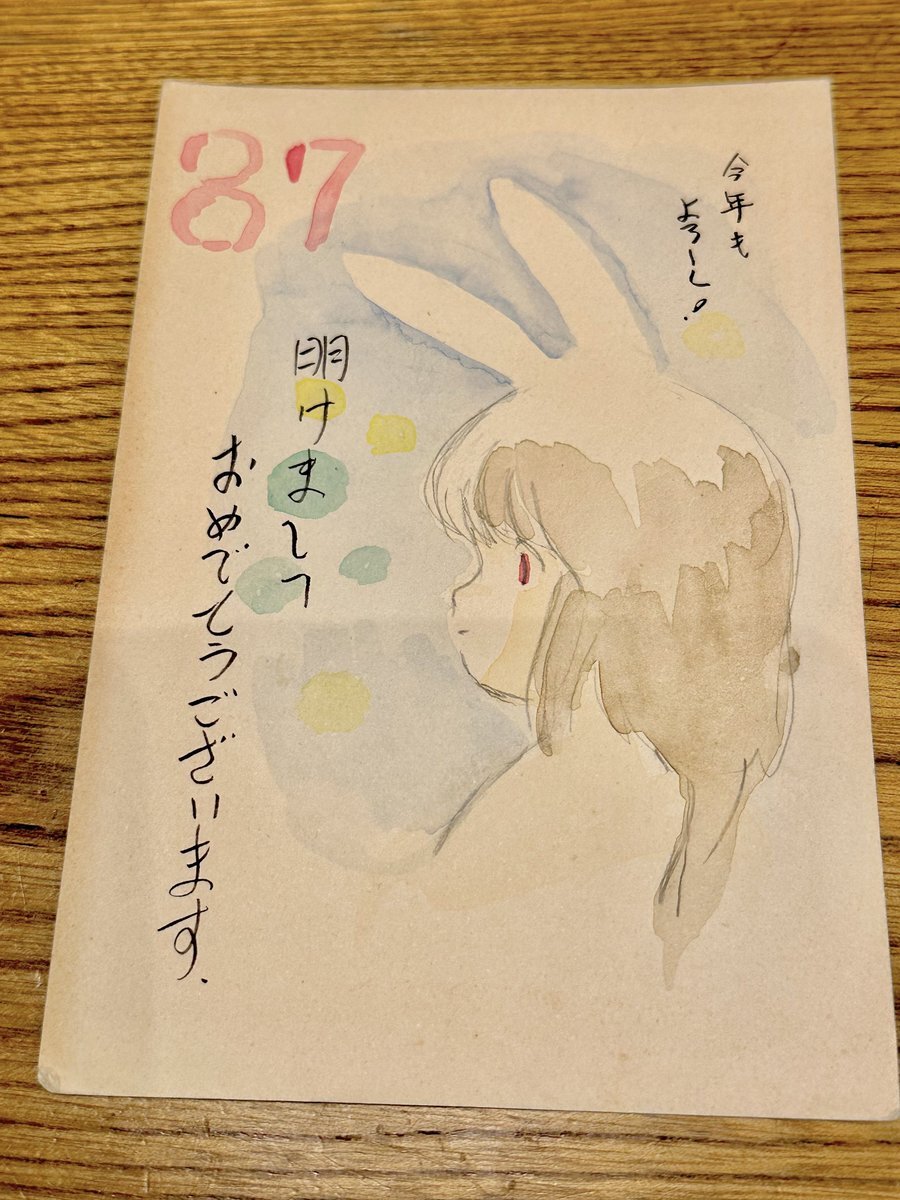 87
今年も
よろしく!
明けまして
おめでとうございます.